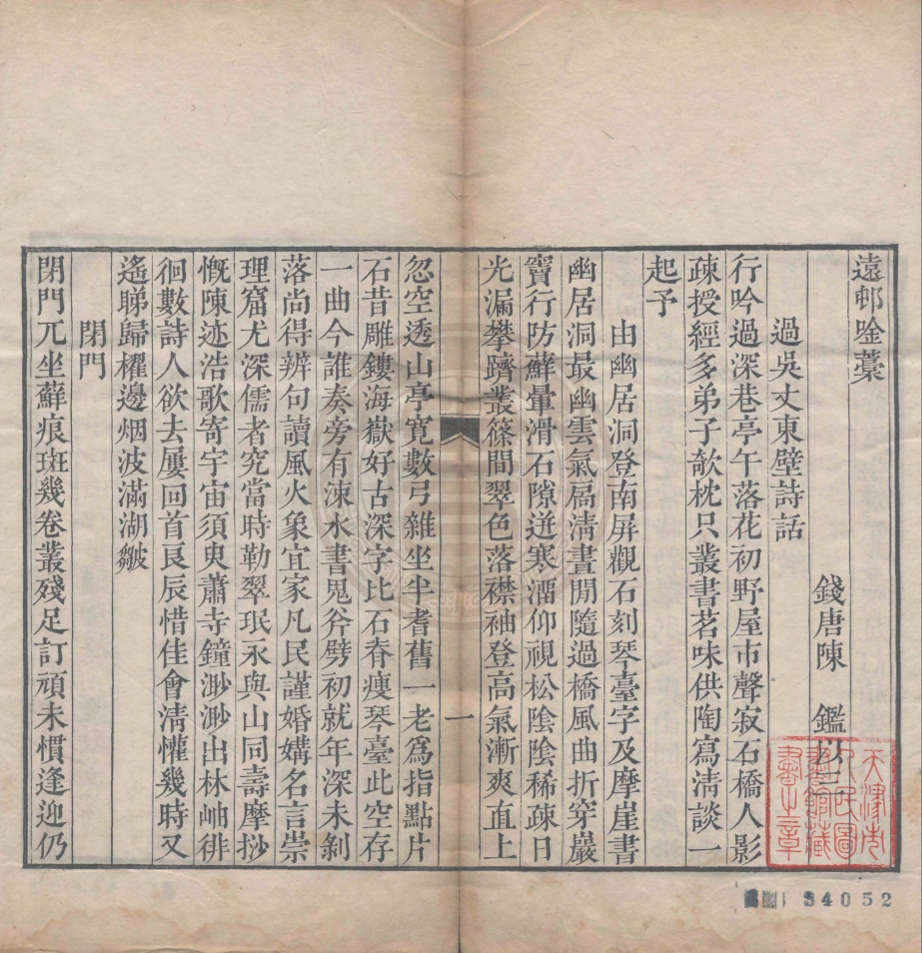 遠邨唫藁
錢唐陳　鑑
過吳丈東壁詩話
行吟過深巷亭午落花初野屋市聲寂石橋人影
疎授經多弟子欹枕只叢書茗味供陶寫淸談一
起予
由幽居洞登南屏觀石刻琴臺字及摩崖書
幽居洞最幽雲氣扃淸晝閒隨過橋風曲折穿巖
竇行防蘇暈滑石隙迸寒溜仰視松陰陰稀疎日
光漏攀躋叢篠間翠色落襟袖登高氣漸爽直上
一
忽空透山亭寛數弓雜坐半耆舊一老爲指點片
石昔雕鏤海嶽好古深字比石脊瘦琴臺此空存
一曲今誰奏旁有涑水書鬼斧劈初就年深未剝
落尚得辨句讀風火象宜家凡民謹婚媾名言崇
理窟尤深儒者究當時勒翠珉永與山同壽摩挱
慨陳迹浩歌寄宇宙須臾蕭寺鐘渺渺出林岫徘
徊數詩人欲去屢回首良辰惜佳會淸懽幾時又
遙睇歸櫂邊烟波滿湖皺
閉門
閉門兀坐蘚痕斑幾卷叢殘足訂頑未慣逢迎仍
天津市
人民圖
書館藏
書之章
34052